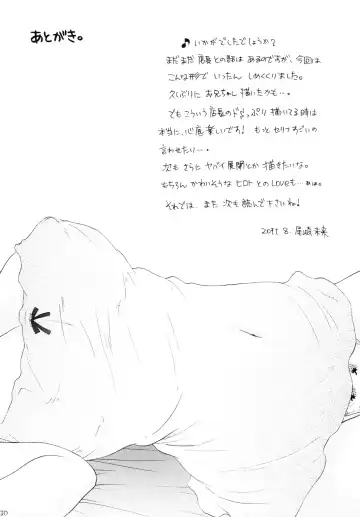 あとがき。
♪ いかがでしたでしょうか?
まだまだ店長との話はあるのですが、今回は
こんな形でいったん しめくくりました。
久しぶりに お兄ちゃん描いたかも・・
でもこういう店長のドS っぷり描いてる時は
本当に、心底楽しいです! もっとセリフすごいの
言わせたい・・・
次も さらに ヤバイ展開とか描きたいな。
もちろん かわいそうな ヒロト との Loveも・・
それでは、また 次も 読んで下さいね!
2011. 8. 尾崎未来
30